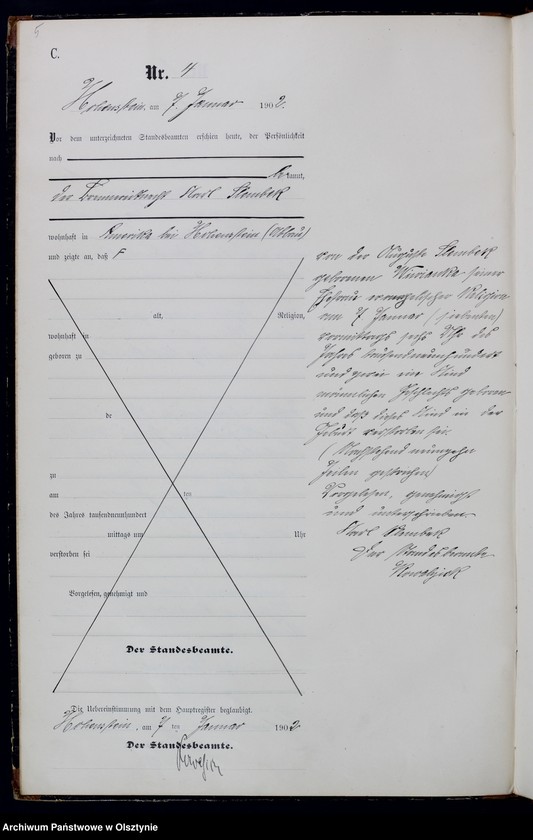 5
C.
Nr. 4
Hohenstein, am 7. Januar 1902.
Vor dem unterzeichneten Standesbeamten erschien heute, der Persönlichkeit
nach
be kannt,
der Karl Stembek
wohnhaft in Amerika bei Hohenstein
und zeigte an, daß
alt, Religion,
wohnhaft in
geboren zu
de
zu
am ten
des Jahres tausendneunhundert
mittags um Uhr
verstorben sei
Vorgelesen, genehmigt und
Der Standesbeamte.
von der Auguste Stembek
geborenen seiner
Ehefrau evangelischer Religion
am 7 Januar (siebenten)
vormittags sechs Uhr des
Jahres tausendneunhundert
und zwei ein Kind
männlichen Geschlechts geboren
und daß dieses Kind in der
Geburt verstorben sei.
(Vorstehend neunzehn
Zeilen gestrichen)
Vorgelesen, genehmigt
und unterschrieben
Karl Stembek
Der Standesbeamte
Die Uebereinstimmung mit dem Hauptregister beglaubigt.
Hohenstein, am 7 ten Januar 1902
Der Standesbeamte.
Archiwum Państwowe w Olsztynie